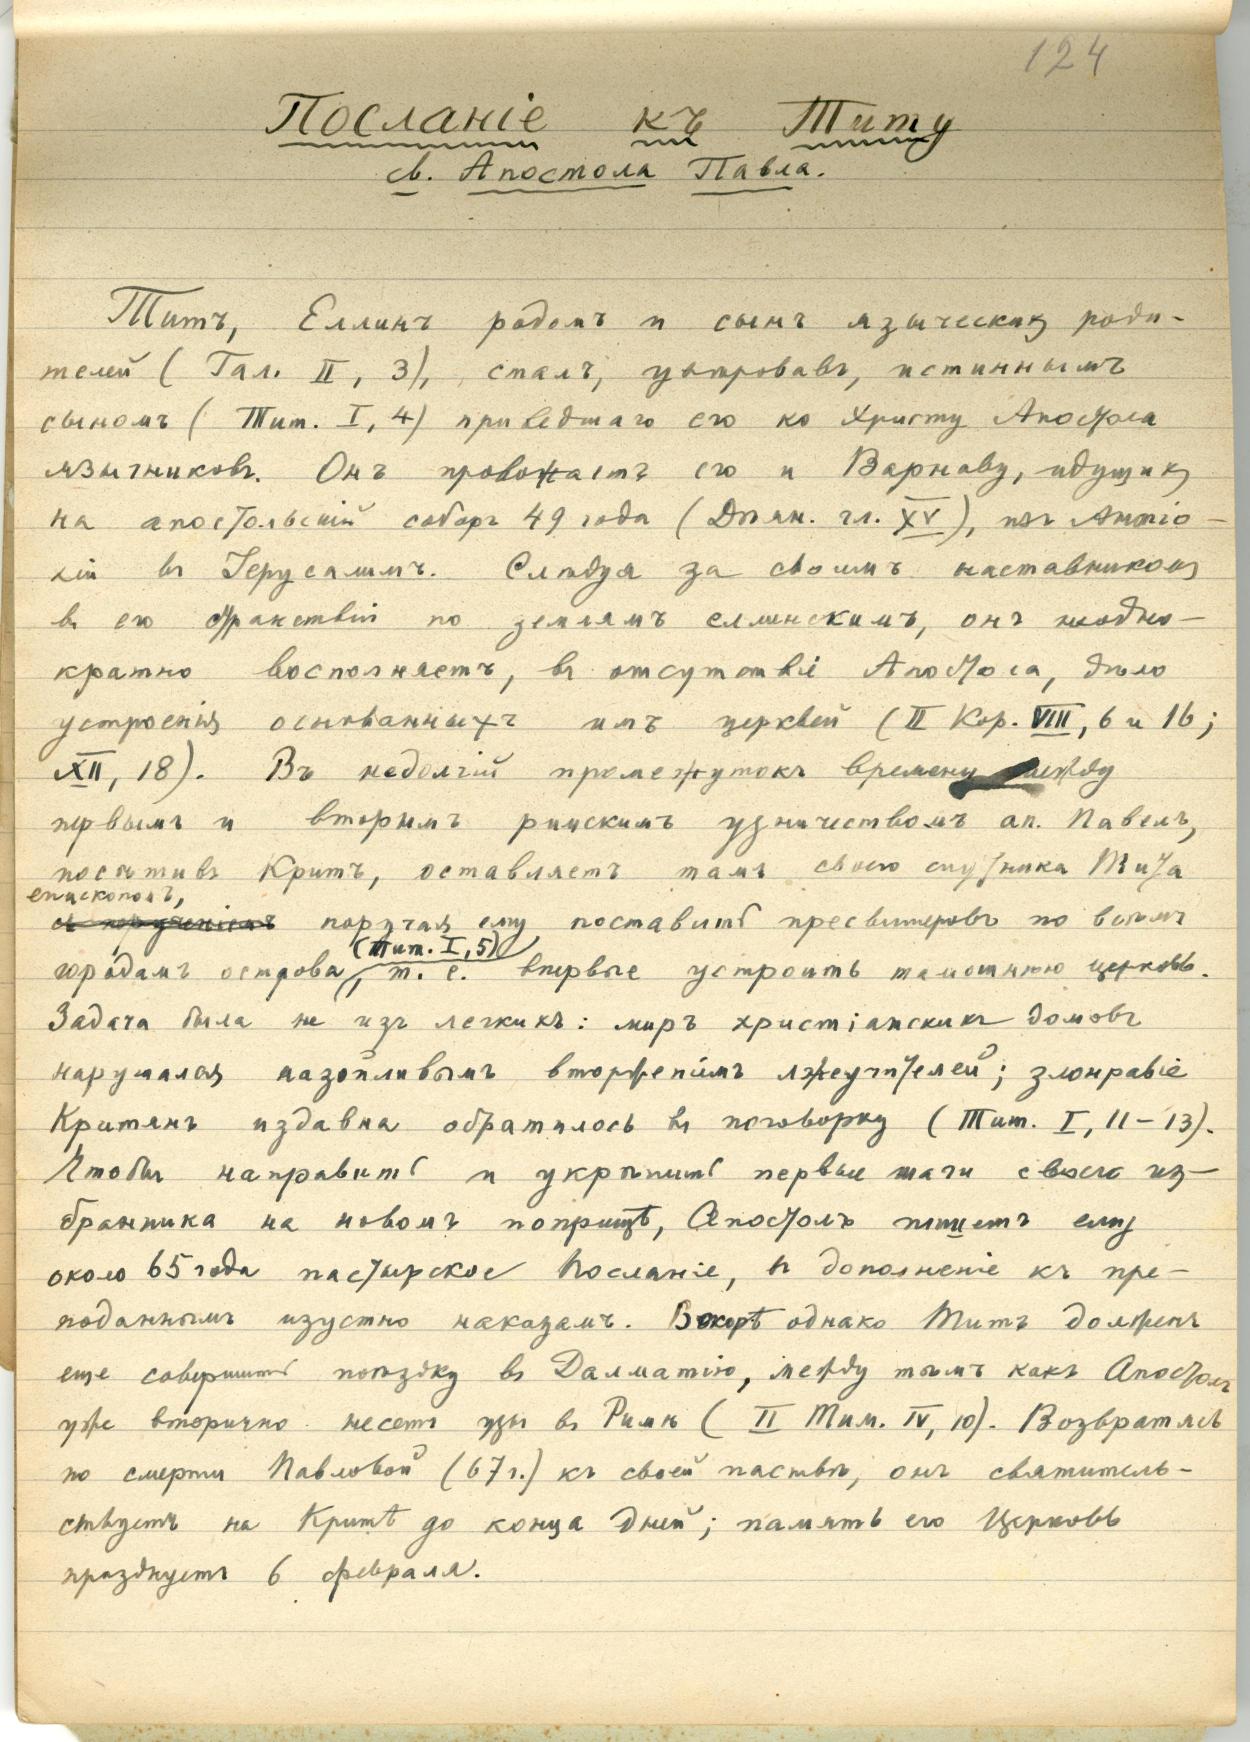 124
Посланіе къ Титу
св. Апостола Павла.
Титъ, Еллинъ родомъ и сынъ языческихъ роди-
телей (Гал. II, 3), сталъ, увѣровавъ, истиннымъ
сыномъ (Тит. I, 4) приведшаго его ко Христу Апостола
язычниковъ. Онъ провожаетъ его и Варнаву, идущихъ
на апостольскій соборъ 49 года (Дѣян. гл. XV), изъ Антіо-
хіи въ Іерусалимъ. Слѣдуя за своимъ наставникомъ
въ его странствіи по землямъ еллинскимъ, онъ неодно-
кратно восполняетъ, въ отсутствіе Апостола, дѣло
устроенія основанныхъ имъ церквей (II Кор. VIII, 6 и 16;
XII, 18). Въ недолгій промежутокъ времени между
первымъ и вторымъ римскимъ узничествомъ ап. Павелъ,
посѣтивъ Критъ, оставляетъ тамъ своего спутника Тита
епископомъ,
съ порученіемъ поручая ему поставить пресвитеровъ по всѣмъ
(Тит. I, 5)
городамъ острова, т. е. впервые устроить тамошнюю церковь.
Задача была не изъ легкихъ: миръ христіанскихъ домовъ
нарушался назойливымъ вторженіемъ лжеучителей; злонравіе
Критянъ издавна обратилось въ поговорку (Тит. I, 11-13).
Чтобы направить и укрѣпить первые шаги своего из-
бранника на новомъ поприщѣ, Апостолъ пишетъ ему
около 65 года пастырское Посланіе, въ дополненіе къ пре-
поданнымъ изустно наказамъ. Вскорѣ однако Титъ долженъ
еще совершить поѣздку въ Далматію, между тѣмъ какъ Апостолъ
уже вторично несетъ узы въ Римѣ (II Тим. IV, 10). Возвратясь
по смерти Павловой (67 г.) къ своей паствѣ, онъ святитель-
ствуетъ на Критѣ до конца дней; память его Церковь
празднуетъ 6 февраля.